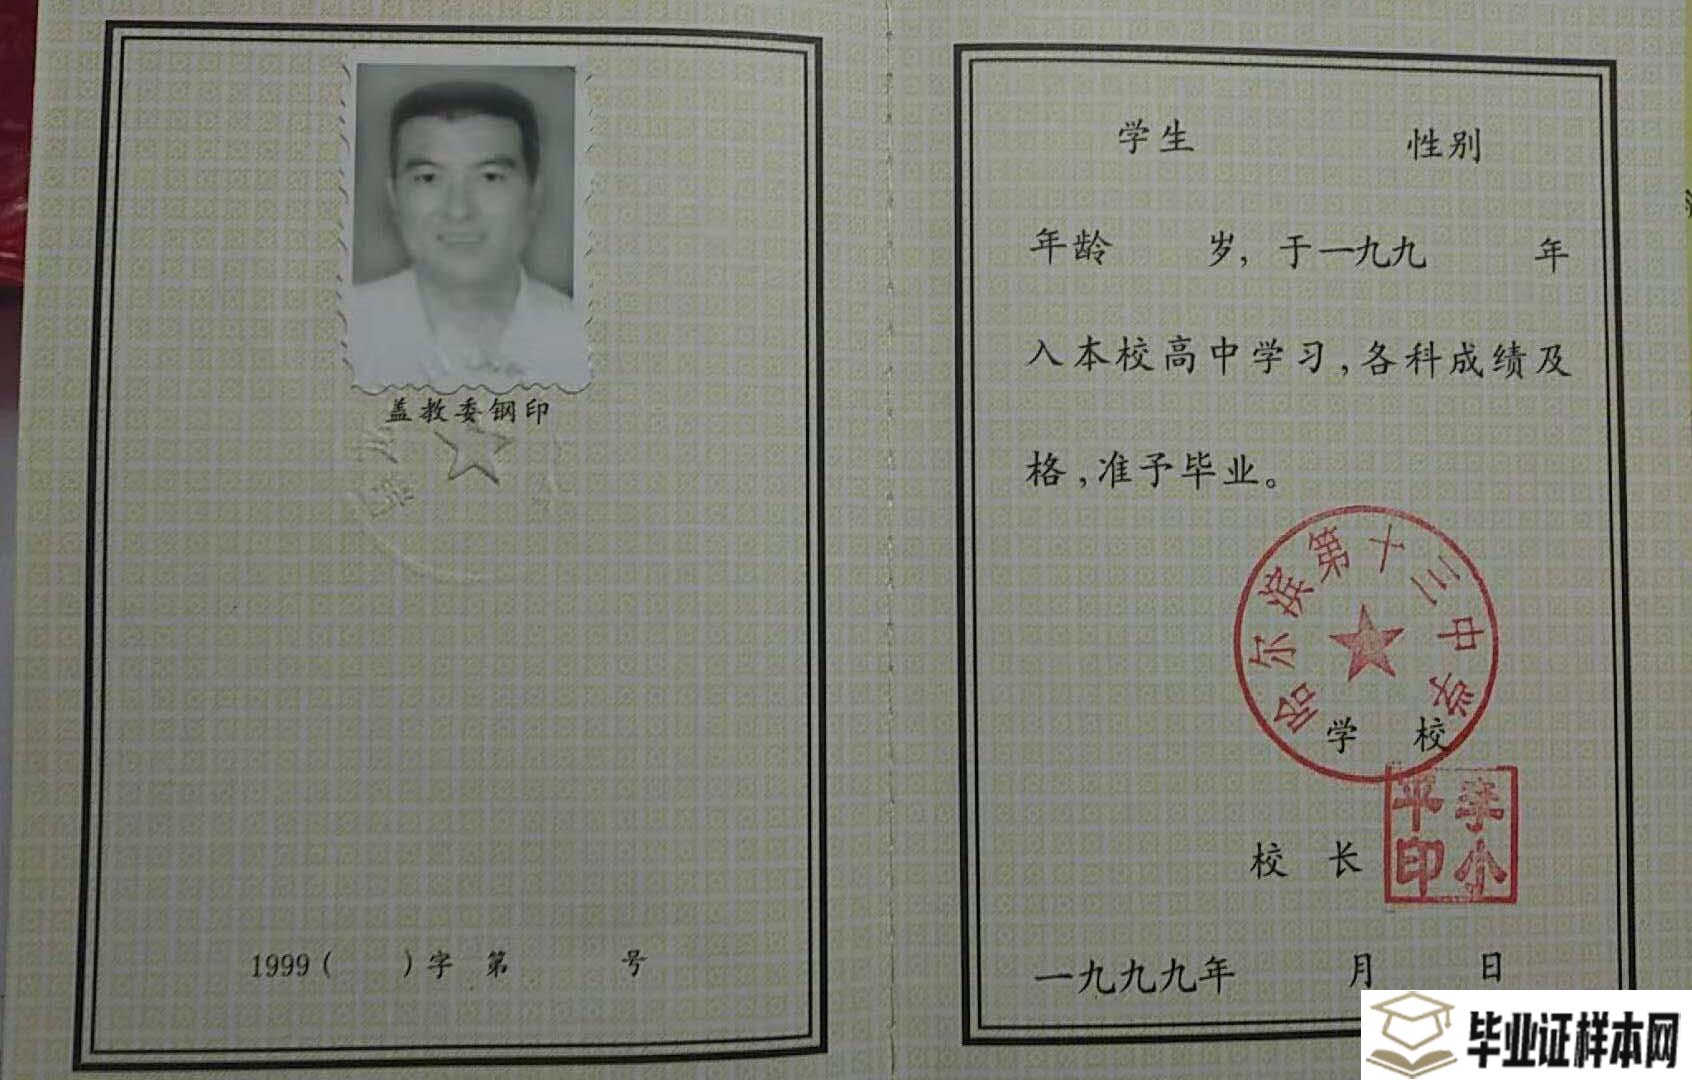 盖教委钢印
1999( )字 第 号
学生 性别
年龄 岁, 于一九九 年
入本校高中学习,各科成绩及
格,准予毕业。
哈尔滨第十三中学
学 校
校 长
李小平印
一九九九年 月 日
毕业证样本网